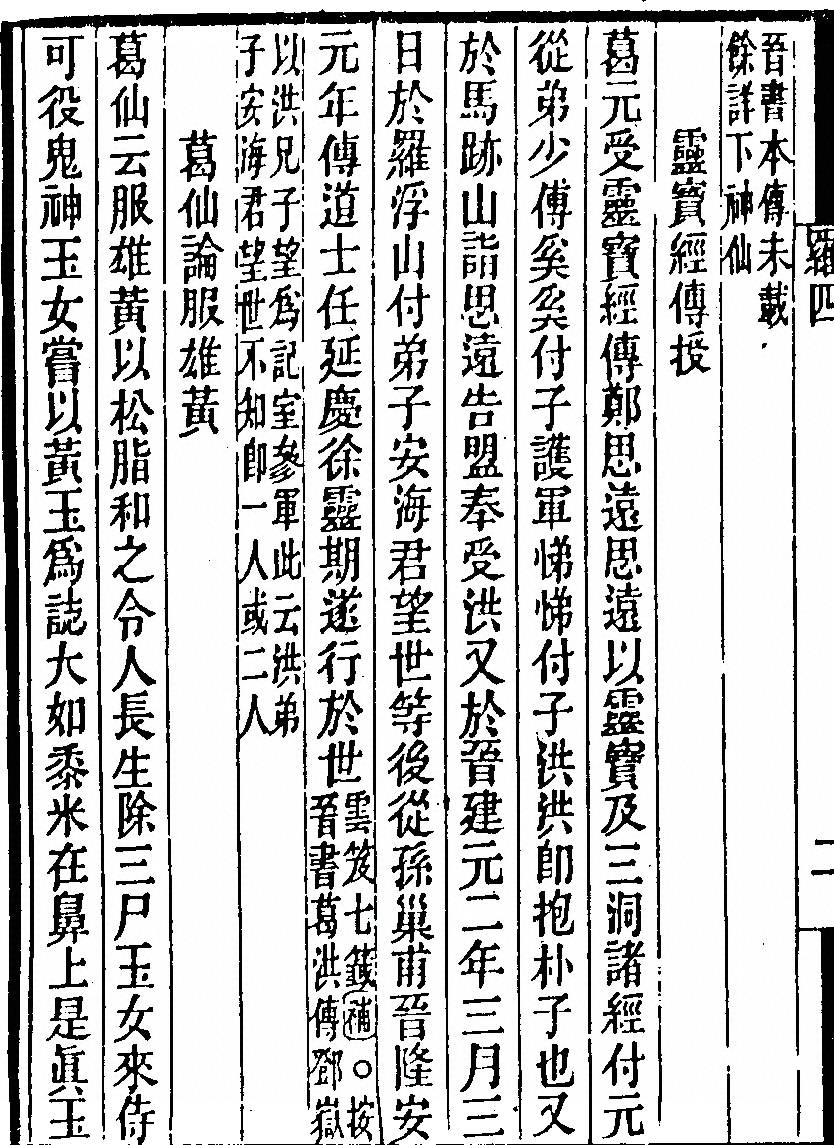 羅四
二
晉書本傳未載
餘詳下神仙
靈寶經傳授
葛元受靈寶經傳鄭思遠思遠以靈寶及三洞諸經付元
從弟少傅奚奚付子護軍悌悌付子洪洪卽抱朴子也又
於馬跡山詣思遠告盟奉受洪又於晉建元二年三月三
日於羅浮山付弟子安海君望世等後從孫巢甫晉隆安
元年傳道士任延慶徐靈期遂行於世
雲笈七籤補○按
晉書葛洪傳鄧嶽
以洪兄子望爲記室參軍此云洪弟
子安海君望世不知卽一人或二人
葛仙論服雄黃
葛仙云服雄黃以松脂和之令人長生除三尸玉女來侍
可役鬼神玉女嘗以黃玉爲誌大如黍米在鼻上是眞玉